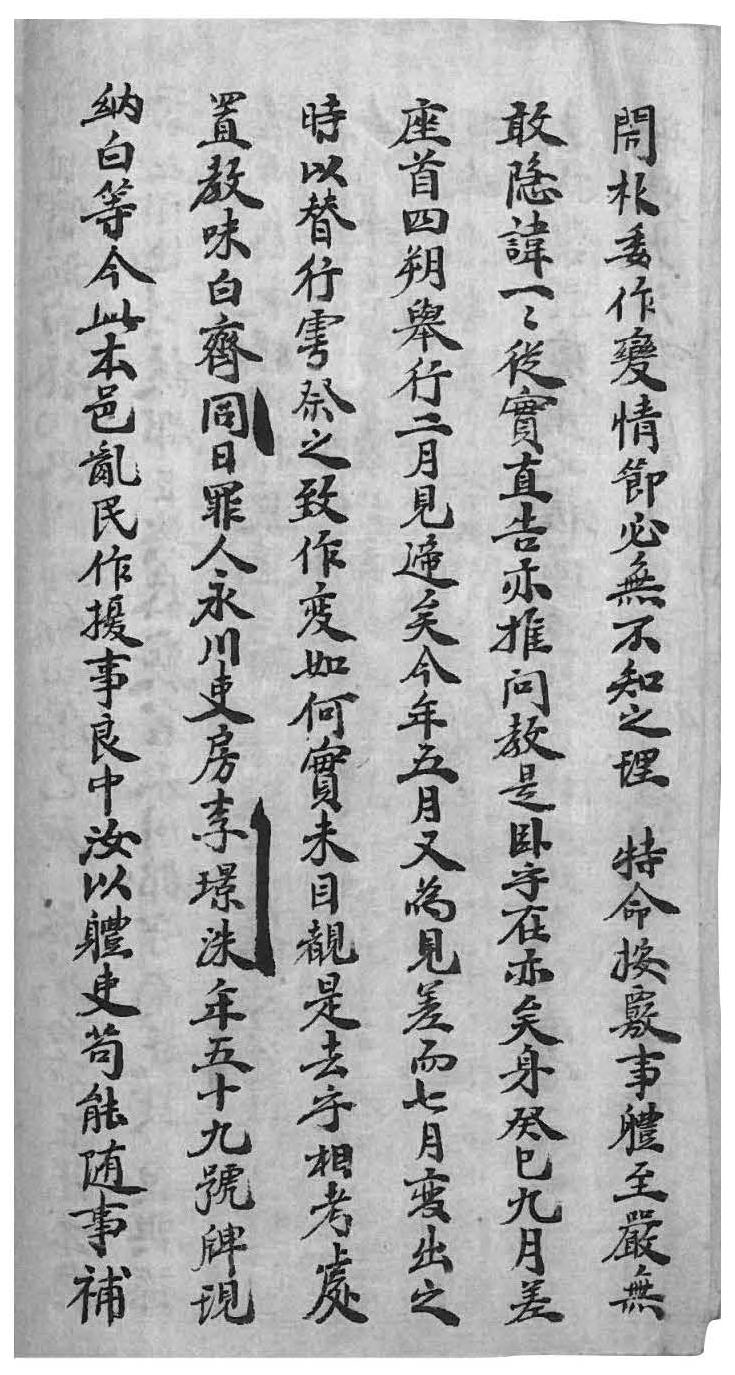 閙朴委作變情節必無不知之理 特命按覈事軆至嚴無
敢隱諱一〻從實直告亦推問教是卧乎在亦矣身癸巳九月差
座首四朔舉行二月見遆矣今年五月又為見差而七月変出之
時以替行雩祭之致作変如何實未目覩是去乎相考處
置教味白齊同日罪人永川吏房李璟洙年五十九號牌現
納白等今此本邑亂民作擾事良中汝以軆吏苟能随事補